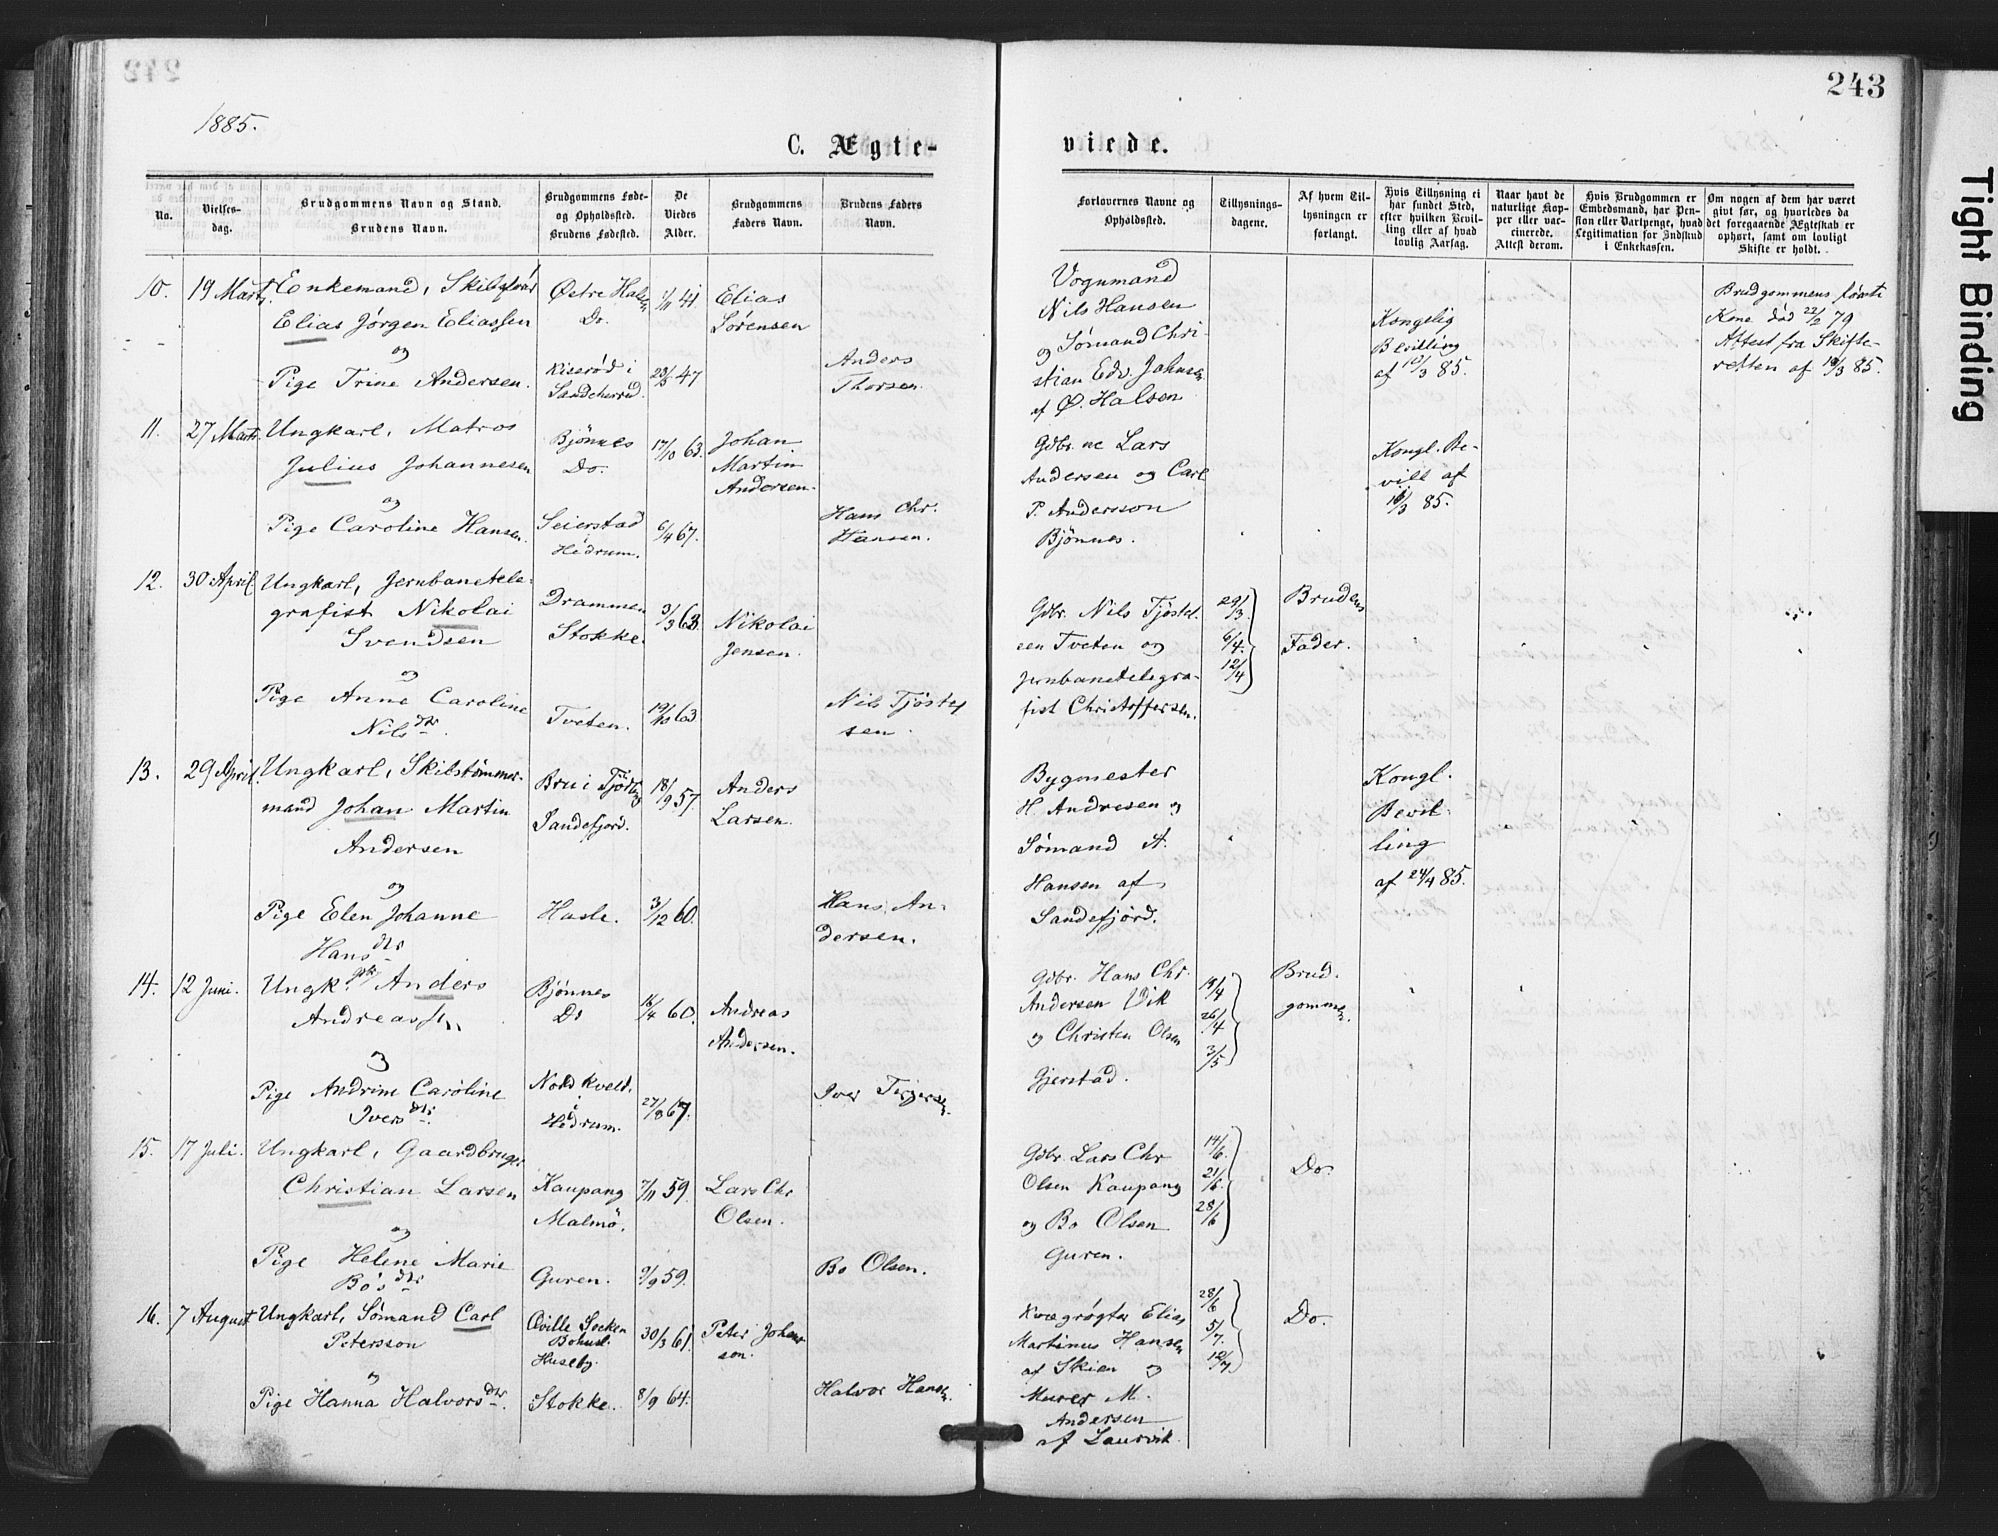 243
1885.
C. Ægte-
viede.
No.
Vielses-
dag.
Brudgommens Navn og Stand.
Brudens Navn.
Brudgommens Føde-
og Opholdssted.
Brudens Fødested.
De
Viedes
Alder.
Brudgommens
Faders Navn.
Brudens Faders
Navn.
Forlovernes Navne og
Opholdssted.
Tillysnings-
dagene.
Af hvem Til-
lysningen er
forlangt.
Hvis Tillysning ei
har fundet Sted,
efter hvilken Bevil-
ling eller af hvad
lovlig Aarsag.
Naar havt de
naturlige Kop-
per eller vac-
cinerede.
Attest derom.
Hvis Brudgommen er
Embedsmand, har Pen-
sion eller Vartpenge, hvad
Legitimation for Indskud
i Enkekassen.
Om nogen af dem har været
givt før, og hvorledes da
det foregaaende Ægteskab er
ophørt, samt om lovligt
Skifte er holdt.
10. 19 Marts. Enkemand,
Elias Jørgen Eliassen
og
Pige Trine Andersen.
Østre Halsen
Do.
Kiserød i
Sandeherred.
1/11 41
23/5 47
Elias
Sørensen
Anders
Thorsen.
Vognmand
Nils Hansen
og Sømand Chri-
stian Edv. Johnsen
af Ø. Halsen
Kongelig
Bevilling
af 10/3 85.
Brudgommens første
Kone død 22/2 79
Attest fra Skifte-
retten af 85.
11. 27 Marts. Ungkarl, Matros
Julius Johannesen
og
Pige Caroline Hansen.
Bjønnes
Do.
Seierstad
Hedrum.
17/10 63.
6/4 67.
Johan
Martin
Andersen.
Hans Chr.
Hansen.
Gdbr.ne Lars
Andersen og Carl
P. Andersson
Bjønnes.
Kongl. Be-
vill af
85.
12. 30 April. Ungkarl, Jernbanetele-
grafist Nikolai
Svendsen
og
Pige Anne Caroline
Nilsdtr.
Drammen
Stokke.
Tveten.
3/3 63.
19/10 63.
Nikolai
Jensen.
Nils Tjøstel
sen.
Gdbr. Nils Tjøstel-
sen Tveten og
Jernbanetelegra-
fist Christoffersen.
29/3.
6/4.
12/4
Brudens
Fader.
13. 29 April. Ungkarl, Skibstømmer-
mand Johan Martin
Andersen
og
Pige Elen Johanne
Hansdtr
Bru i Tjødling
Sandefjord.
Hasle.
18/9 57
3/12 60.
Anders
Larsen.
Hans An-
dersen.
Bygmester
H. Andresen og
Sømand A.
Hansen af
Sandefjord.
Kongl.
Bevil-
ling
af 24/4 85.
14. 12 Juni. Ungk. Gdbr. Anders
Andreassen
og
Pige Andrine Caroline
Iversdtr.
Bjønnes
Do
Nord Kveld.
i
Hedrum.
16/4 60.
27/8 67.
Andreas
Andersen.
Iver Terjersen.
Gdbr. Hans Chr.
Andersen Vik
og Christen Olsen
Gjerstad.
19/4
26/4
3/5
Brud-
gommen.
15. 17 Juli. Ungkarl, Gaardbruger
Christian Larsen
og
Pige Helene Marie
Bo'sdtr
Kaupang
Malmø.
Guren.
7/11 59.
9/9 59.
Lars Chr.
Olsen.
Bo Olsen.
Gdbr. Lars Chr
Olsen Kaupang
og Bo Olsen
Guren.
14/6.
21/6.
28/6
Do.
16. 7 August Ungkarl, Sømand Carl
Petersson
og
Pige Hanna Halvorsdtr.
Qville Socken
Bohusl.
Huseby.
Stokke.
30/3 61.
8/9 64.
Peter Johans
son.
Halvor Hansen.
Kvægrøgter Elias
Martinus Hansen
af Skien og
Murer M.
Andersen
af Laurvik
28/6
5/7.
12/7
Do.
Tight Binding